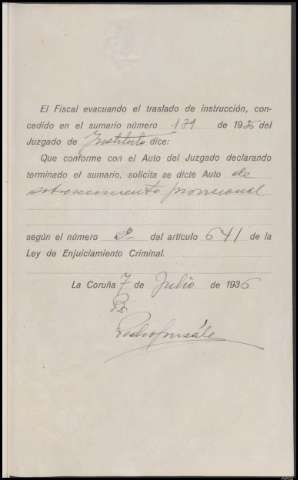 El Fiscal evacuando el traslado de instrucción, con-
cedido en el sumario número 171 de 1936 del
Juzgado de Instituto dice:
Que conforme con el Auto del Juzgado declarando
terminado el sumario, solicita se dicte Auto de
sobreseimiento provisional
según el número 2º del artículo 641 de la
Ley de Enjuiciamiento Criminal.
La Coruña 7 de Julio de 1936
Pedro Gonzále